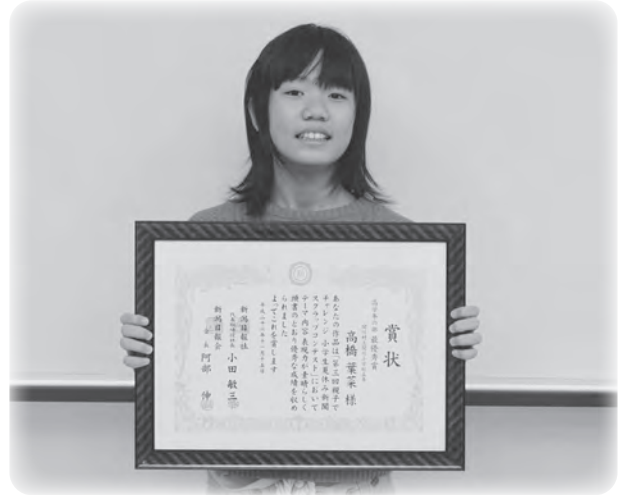 賞状
最優秀賞
高橋 葉菜 様
あなたの作品は「第三回親子で
チャレンジ 小学生夏休み新聞
スクラップコンテスト」において
テーマ 内容 表現力が素晴らしく
頭書のとおり優秀な成績を収め
られました
よってこれを賞します
新潟日報社
代表取締役社長 小田 敏三
新潟日報会
会長 阿部 伸